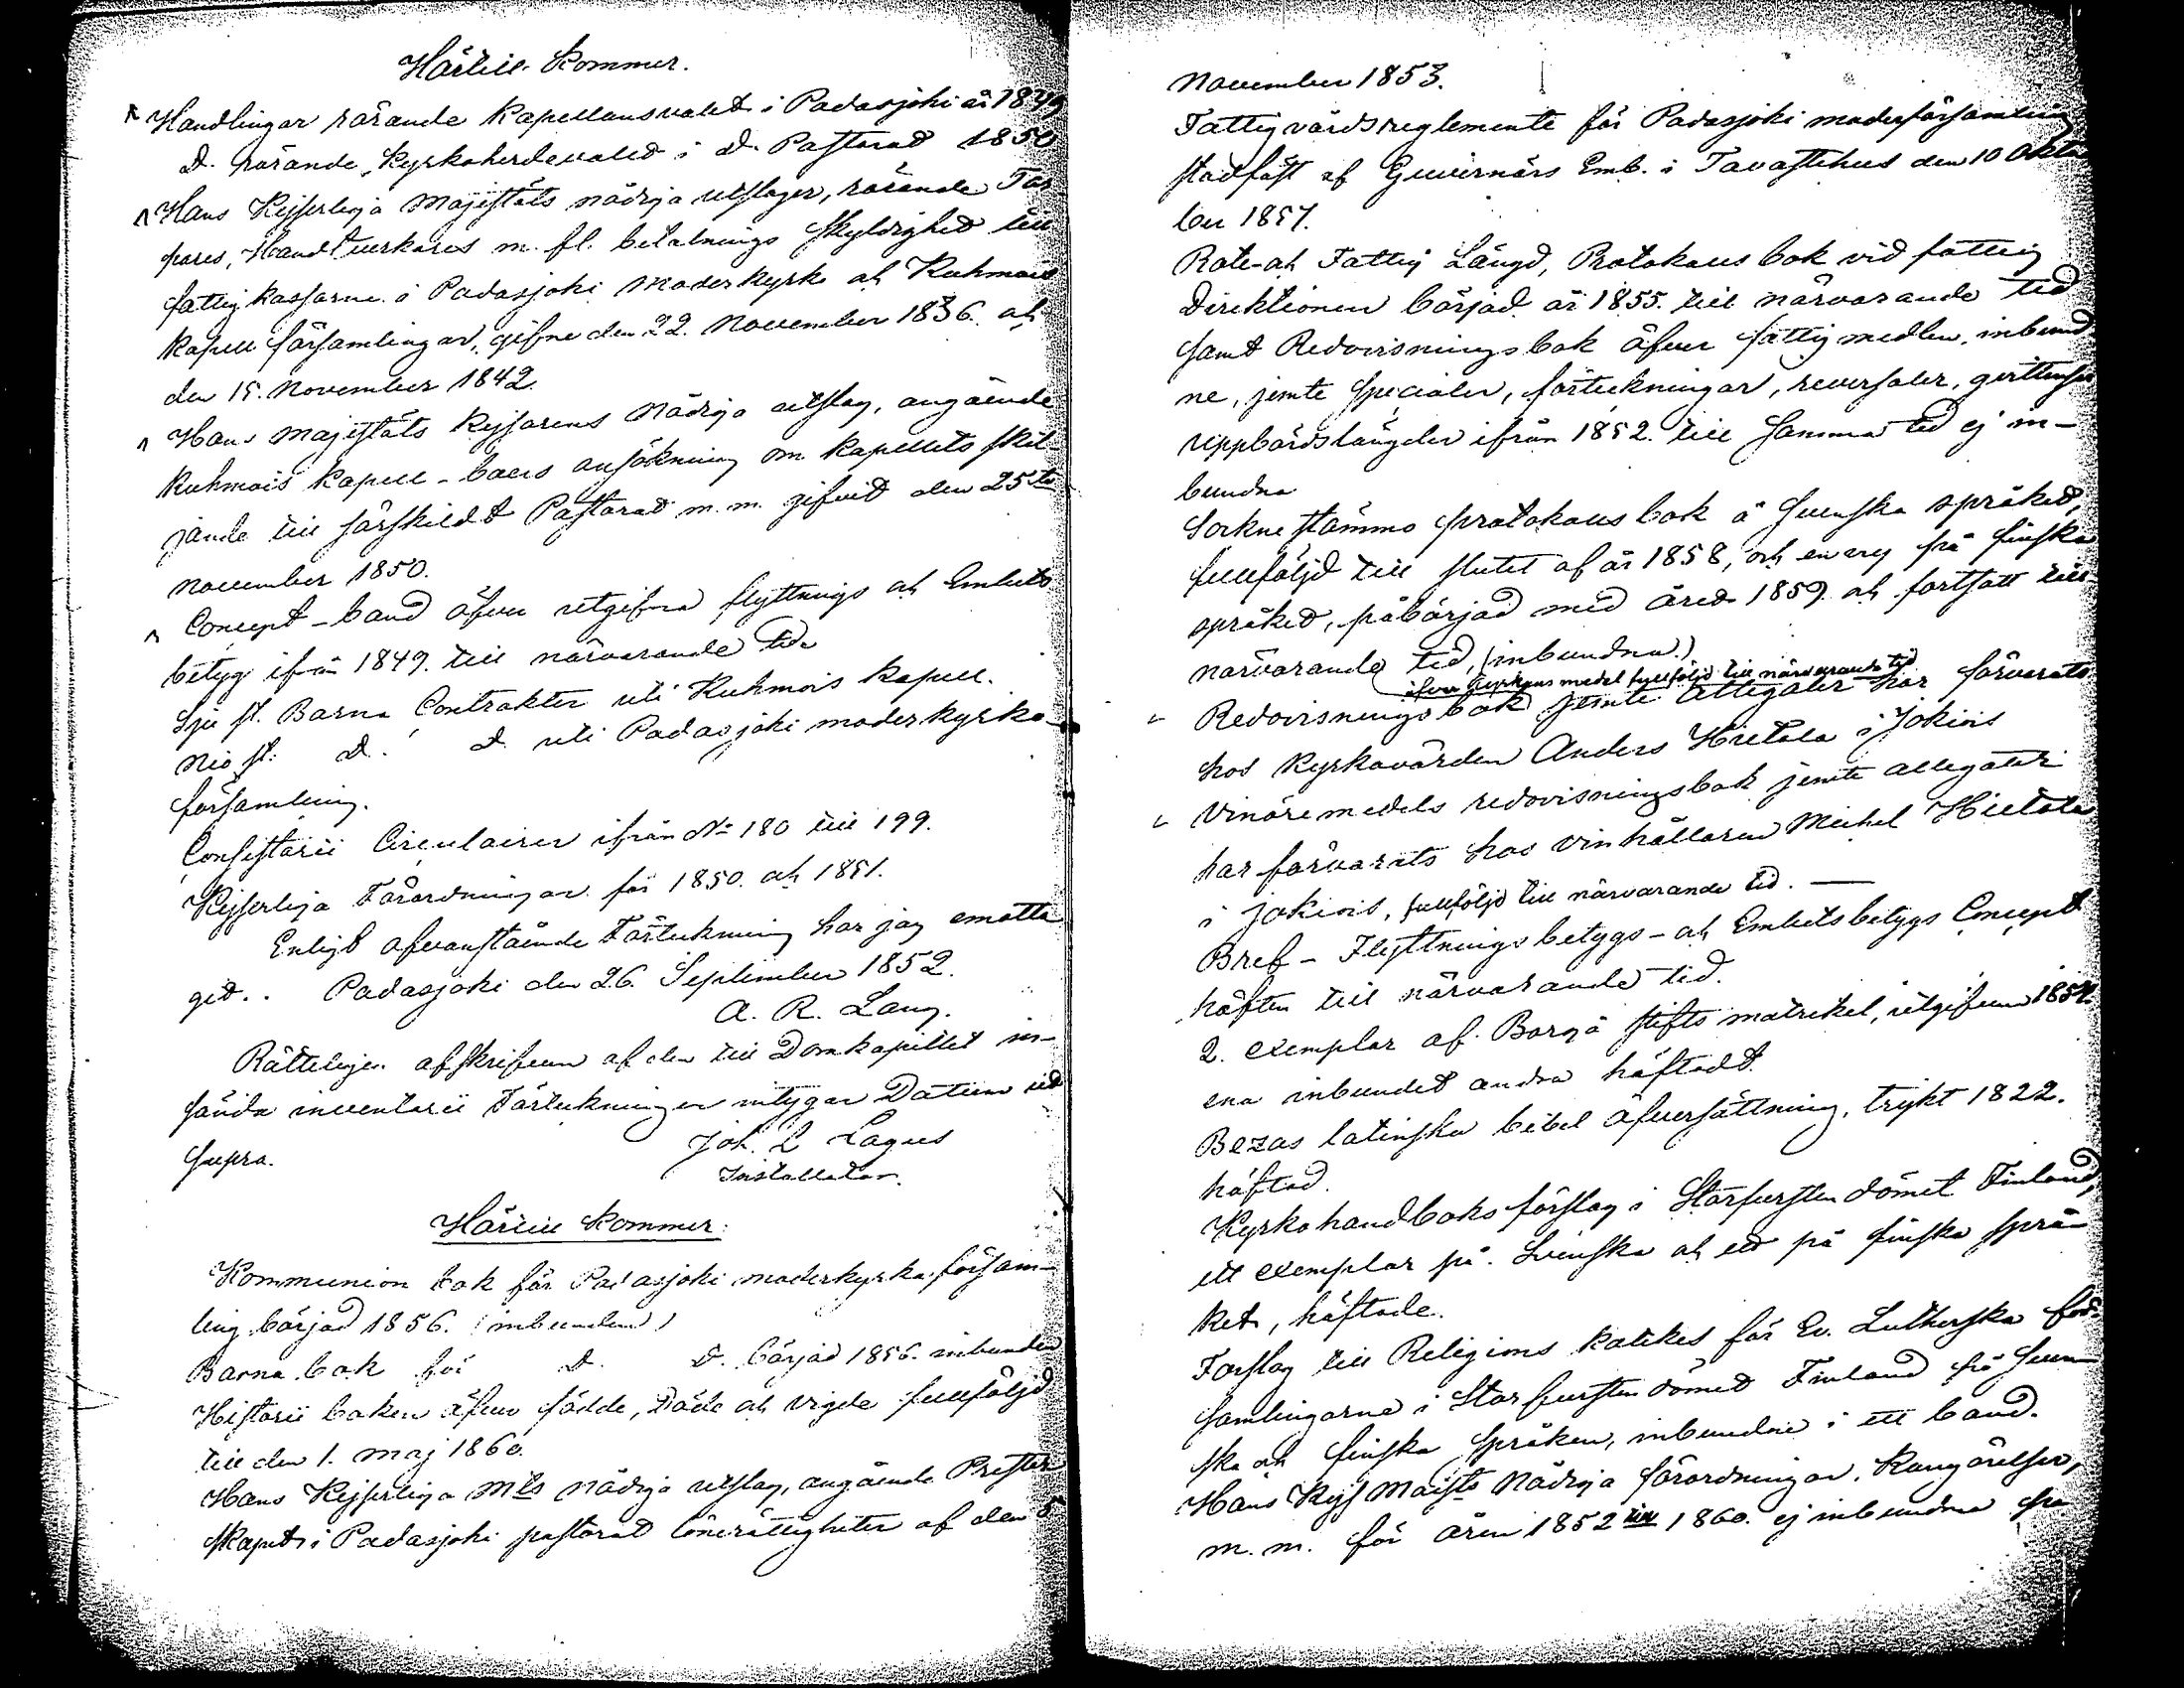 Härtill Kommer.
Handlingar rörande Kapellansvalet i Padasjoki år 1849
D. rörande Kyrkoherdevalet i d. Pastorat 1850
Hans Kejserliga Majestäts nådiga utslager, rörande Tor
pares, Handtverkares m. fl. betalnings skyldighet till
fattigkassarne i Padasjoki moderkyrko och Kuhmois
kapell församlingar, gifne den 22. November 1836. och
den 15. November 1842.
Hans Majestäts Kejsarens Nådiga utslag, angående
Kuhmois Kapell-boers ansökning om kapellets skil
jande till särskildt Pastorat m. m. gifvet den 25te
november 1850.
Concept-band öfver utgifna flyttnings och Embets
betyg ifrån 1849. till närvarande tid
Sju st. Barna Contrakter uti Kuhmois Kapell.
Nio st: d. d. uti Padasjoki moderkyrko
församling.
Consistorii Circulairer ifrån No 180 till 199.
Kejserliga Förordningar för 1850. och 1851.
Enligt ofvanstående Förteckning har jag emotta
git.. Padasjoki den 26. September 1852.
A. R. Lang.
Rätteligen afskrifven af den till Domkapitlet in-
sända inventarii Förteckningen intygar Datum ut
supra.
Joh. L Lagus
Installator.
Härtill Kommer:
Kommunion bok för Padasjoki moderkyrko församl-
ling börjad 1856. (inbunden)
Barna bok för d. d. börjad 1856. inbunden
Historii boken öfver födde, Döde och vigde fullföljd
till den 1. maj 1860.
Hans Kejserliga Mts nådiga utslag, angående Prester
skapets i Padasjoki pastorat lönerättigheter af den 5
November 1853.
Fattigvårdsreglemente för Padasjoki moderförsamling
stadfäst af Guvernörs Emb. i Tavastehus den 10 Okto
ber 1857.
Rote- och Fattig Längd, Protokolls bok vid fattig
Direktionen börjad år 1855. till närvarande tid
samt Redovisningsbok öfver fattigmedlen, inbund
ne, jemte specialer, förteckningar, reversaler, qvittenser
uppbördslängder ifrån 1852. till samma tid ej in-
bundna
Sockne stämmo protokolls bok å Svenska språket,
fullföljd till slutet af år 1858, och en ny på finska
språket, påbörjad med året 1859. och fortsatt till
närvarande tid, (inbundna.)
öfver kyrkans medel fullföljd till närvarande tid
Redovisnings bok jemte allegater har förvarats
hos Kyrkovärden Anders Hietala i Jokiois
Vinöre medels redovisningsbok jemte allegater
har förvarats hos vinhållaren Michel Hietala
i Jokiois, fullföljd till närvarande tid. —
Bref- Flyttnings betygs- och Embetsbetygs Concept
häften till närvarande tid.
2. exemplar af Borgå stifts matrikel, utgifven 1854.
ena inbundet andra häftadt.
Bezas latinska bibel öfversättning, trykt 1822.
häftad.
Kyrkohandboks förslag i Storfurstendömet Finland,
ett exemplar på Svenska och ett på finska språ
ket, häftade.
Förslag till Religions katekes för Ev. Lutherska för
samlingarne i Storfurstendömet Finland på Sven
ska och finska språken, inbundne i ett band.
Hans Kejs Maijts Nådiga förordningar, Kungörelser,
m. m. för åren 1852 till 1860. ej inbundna på